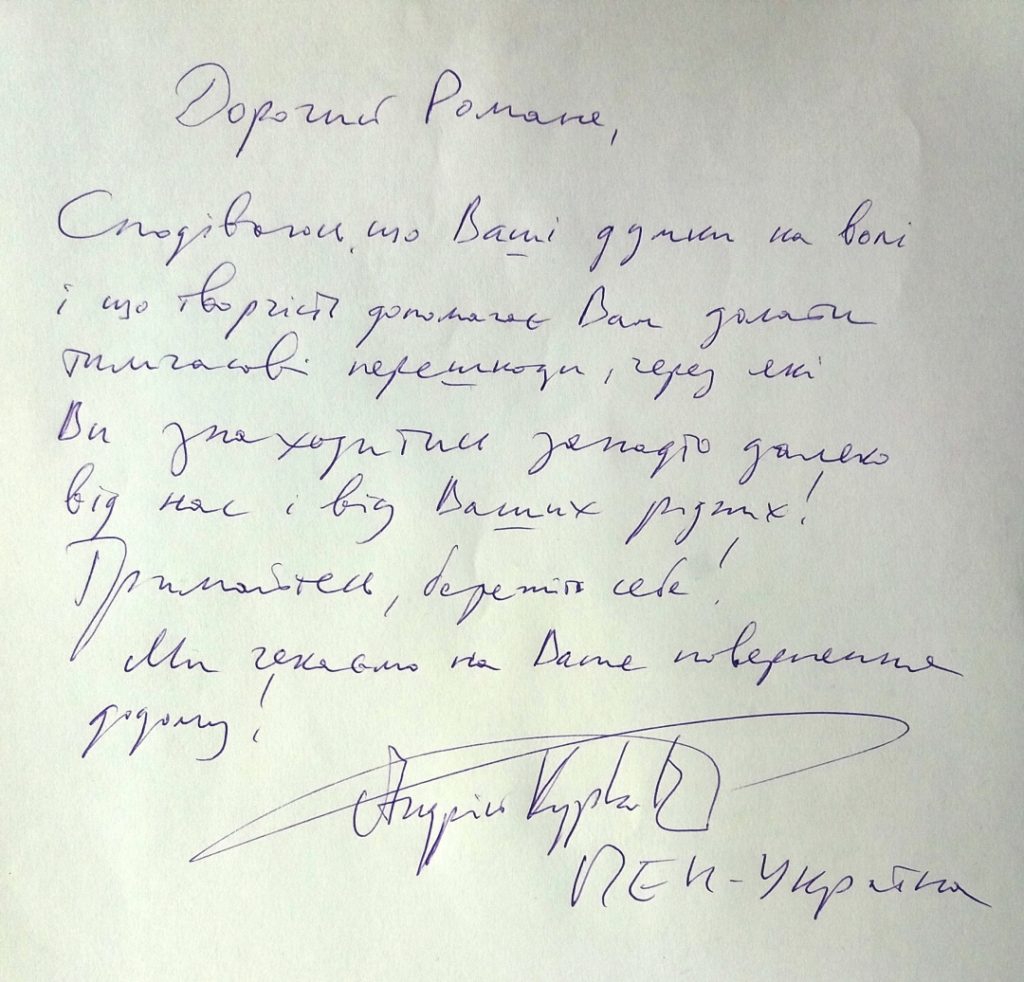 Дорогий Романе,
Сподіваюсь, що Ваші думки на волі
і що творчість допомагає Вам долати
тимчасові перешкоди, через які
Ви знаходитись занадто далеко
від нас і від Ваших рідних!
Тримайтесь, бережіть себе!
Ми чекаємо на Ваше повернення
додому!
Андрій Курков
ПЕН-Україна